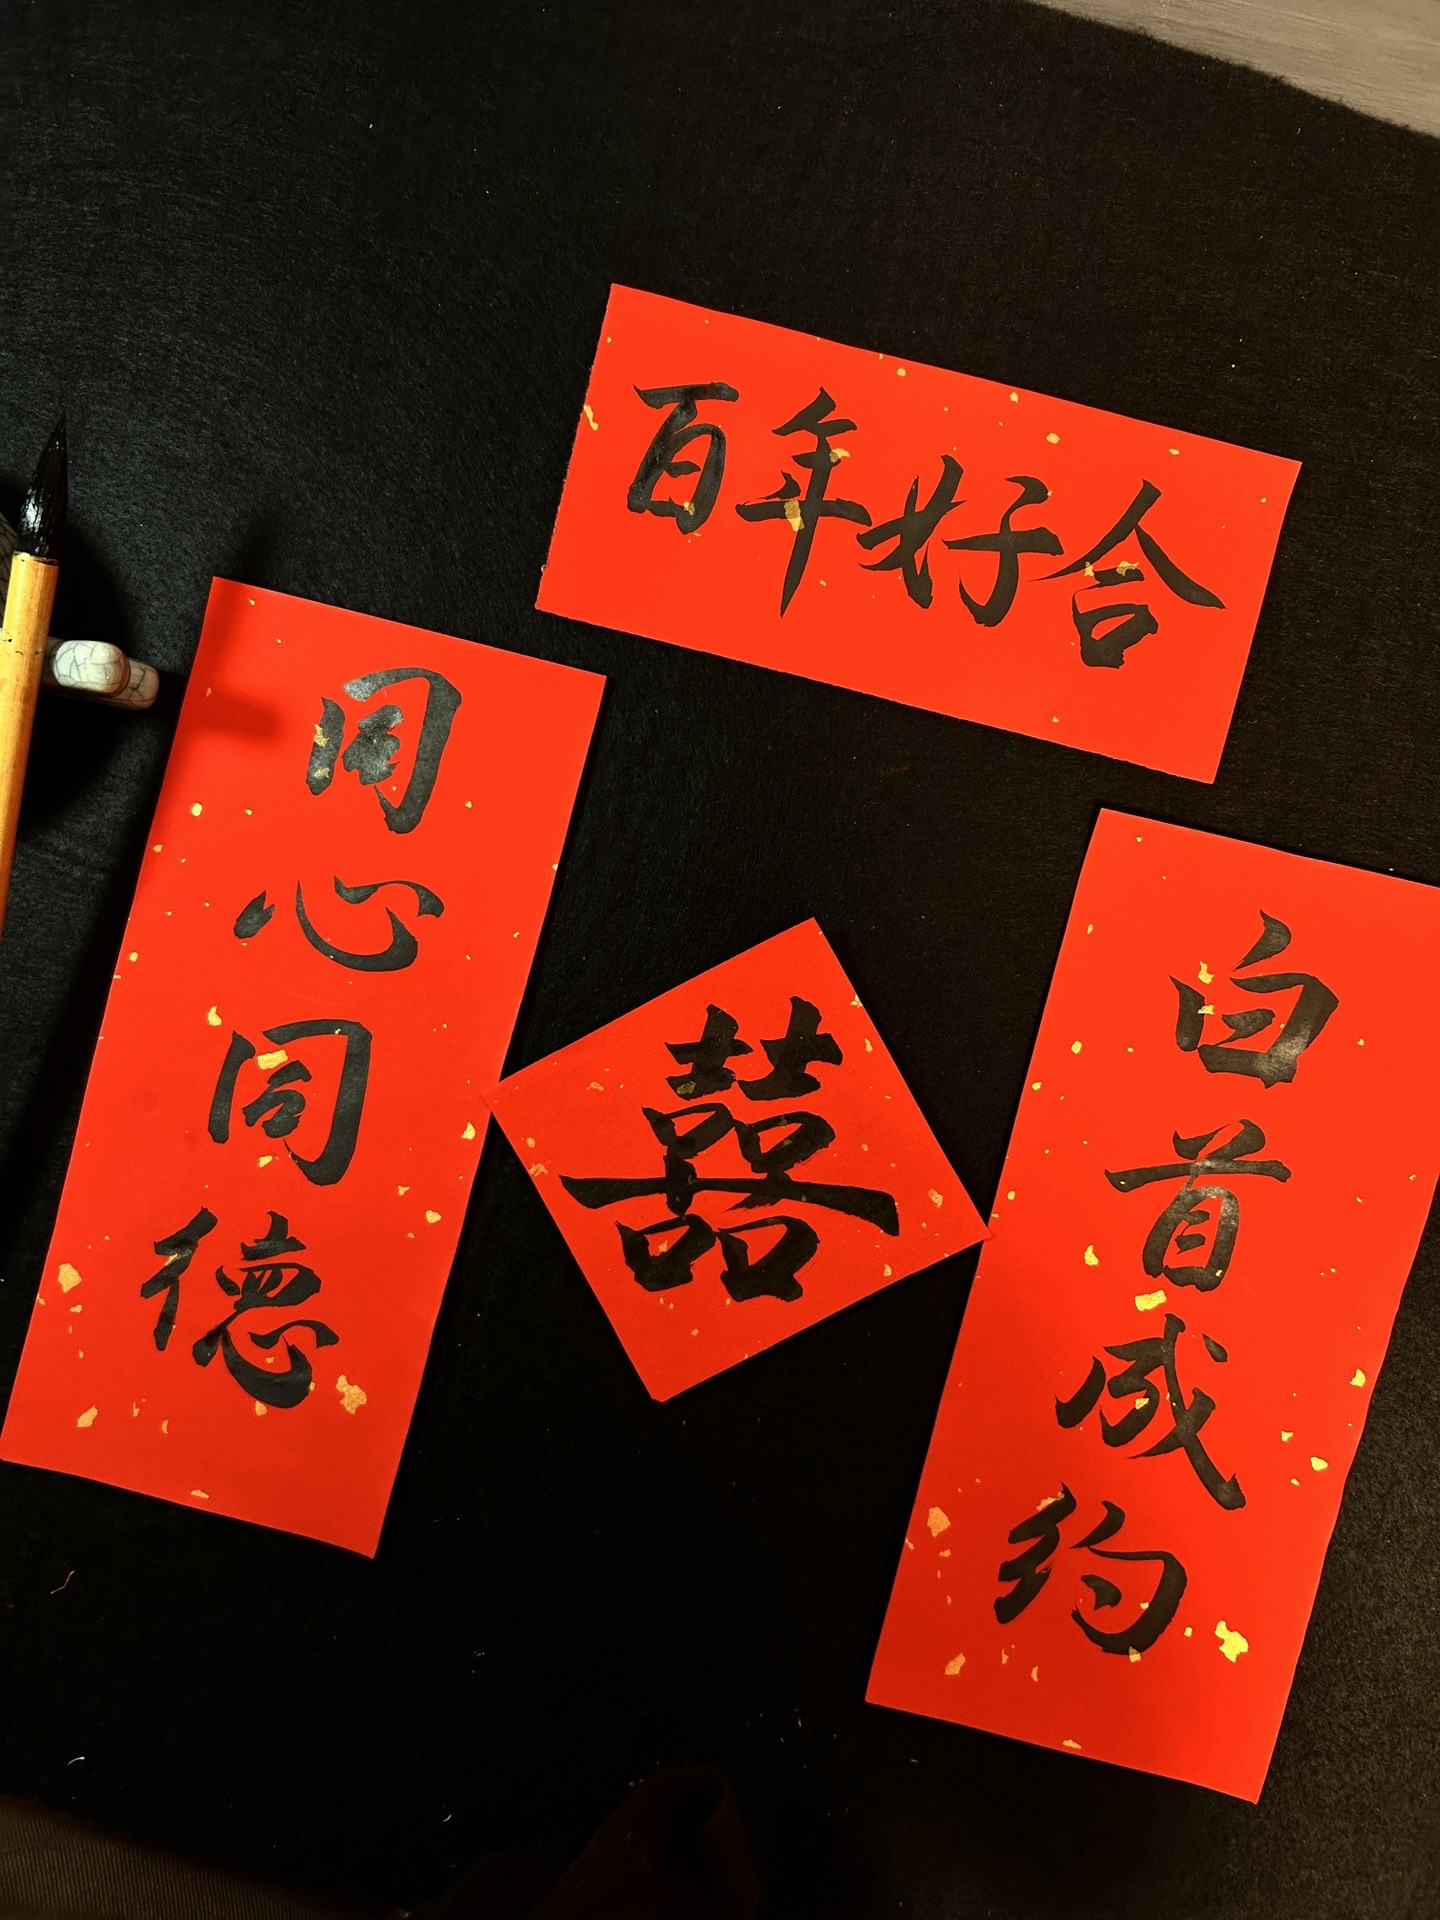 百年好合
同心同德
囍
白首成约